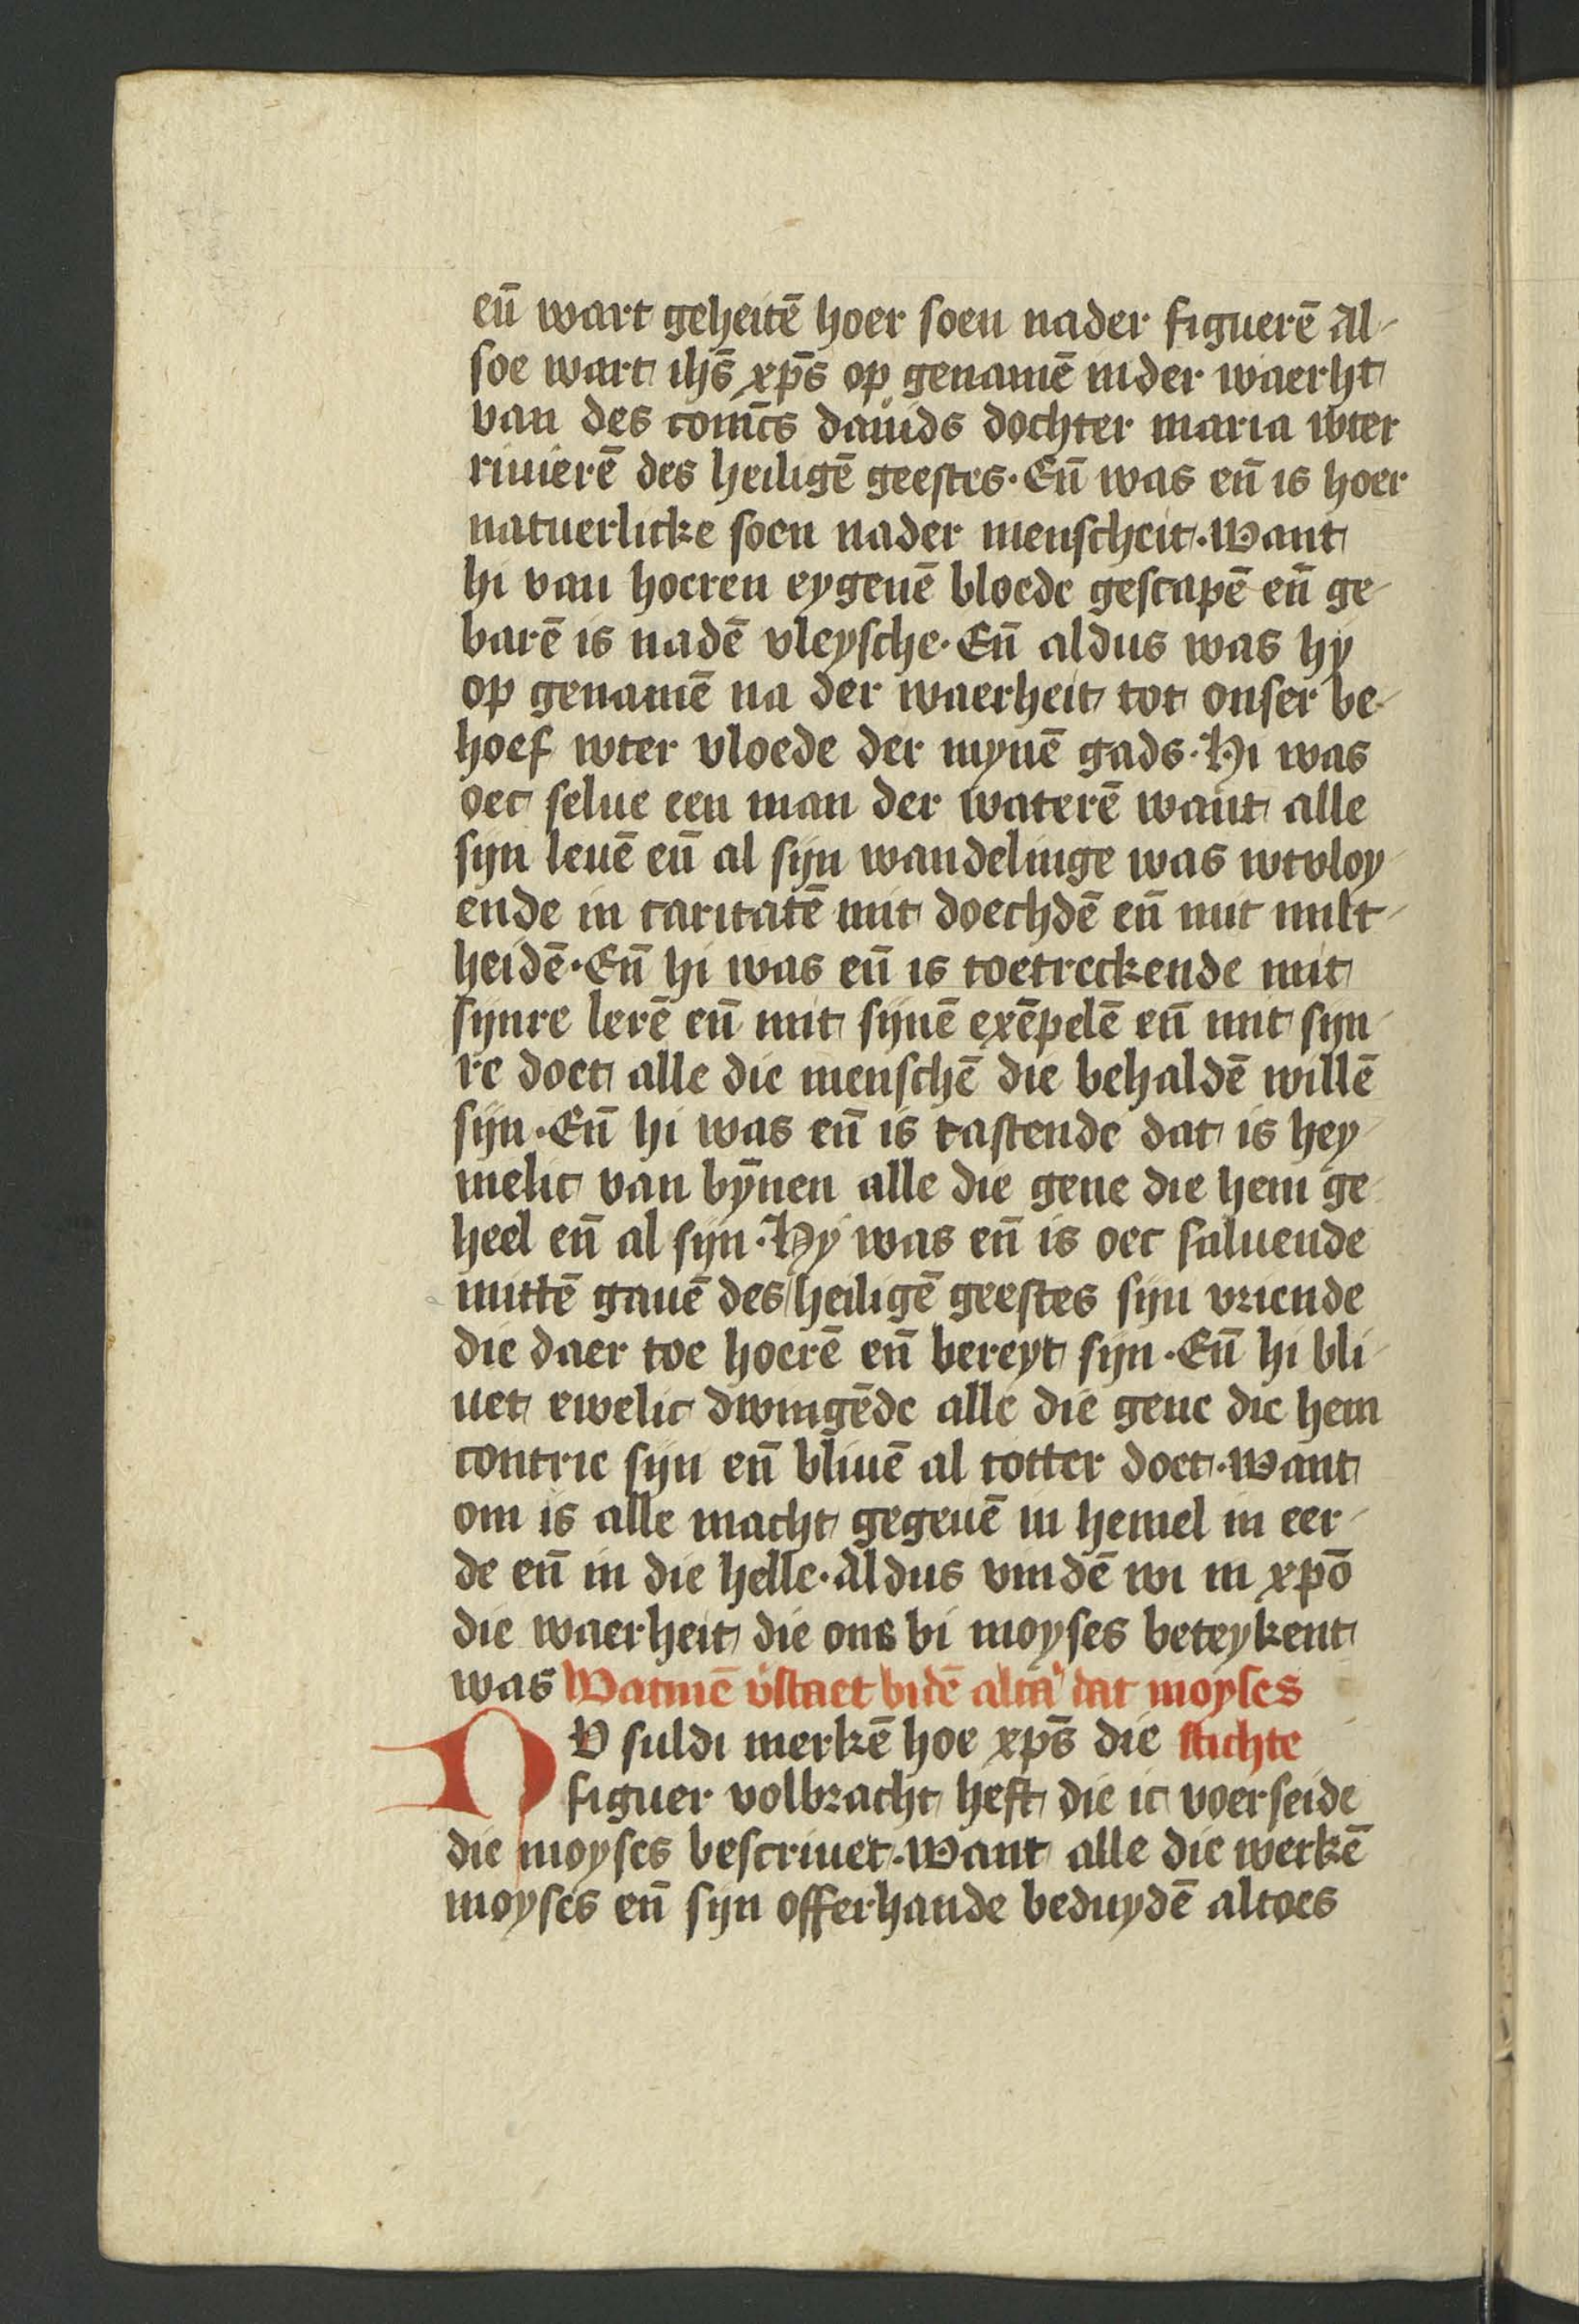 en̄ wart geheitē hoer soen nader figuerē Al-
soe wart ihs̄ xp̄s op genamē inder waerht
van des conīcs dauids dochter maria wter
riuierē des heiligē geestes. En̄ was en̄ is hoer
natuerlicke soen nader menscheit. Want
hi van hoeren eygenē bloede gescapē en̄ ge-
barē is nadē vleysche. En̄ aldus was hy
op genamē na der waerheit tot onser be-
hoef wter vloede der mynē gads. Hi was
oec selue een man der waterē want alle
sijn leuē en̄ al sijn wandelinge was wtvloy-
ende in caritatē mit doechdē en̄ mit milt-
heidē. En̄ hi was en̄ is toetreckende mit
sijnre lerē en̄ mit sijnē exēpelē en̄ mit sijn-
re doet alle die menschē die behaldē willē
sijn. En̄ hi was en̄ is tastende dat is hey-
melic van bȳnen alle die gene die hem ge-
heel en̄ al sijn. Hy was en̄ is oec saluende
mittē gauē des heiligē geestes sijn vriende
die daer toe hoerē en̄ bereyt sijn. En̄ hi bli-
uet ewelic dwingēde alle die gene die hem
contrie sijn en̄ bliuē al totter doet. Want
om is alle macht gegeuē in hemel in eer-
de en̄ in die helle. Aldus vindē wi in xpō
die waerheit die ons bi moyses beteykent
was Watmē v̓staet bidē alta᷑ dat moyses
NV suldi merkē hoe xp̄s die stichte
figuer volbracht heft die ic voerseide
die moyses bescriuet. Want alle die werkē
moyses en̄ sijn offerhande beduydē altoes